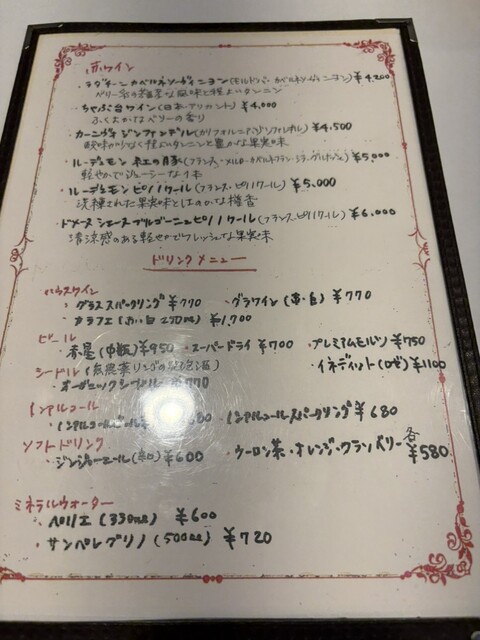 赤ワイン
・ラグナーン カベルネソーヴィニヨン(モルドバ・カベルネソーヴィニヨン) ¥4,200
ベリー系の 風味と程よいタンニン
・ちゃぶ台ワイン(日本・アリカント) ¥4,000
ふくよかなベリーの香り
・カーニヴォ ジンファンデル(カリフォルニア・ジンファンデル) ¥4,500
酸味が少なく程よいタンニンと豊かな果実味
・ルデモン 紅の豚(フランス・メルロ・カベルネフラン・ ) ¥5,000
軽やかでジューシーな1本
・ルーデュモン ピノノワール(フランス・ピノノワール) ¥5,000
洗練された果実味とほのかな樽香
・ドメーヌ シェーヌ ブルゴーニュピノノワール(フランス・ピノノワール) ¥6,000
清涼感のある軽やかでフレッシュな果実味
ドリンクメニュー
ハウスワイン
・グラススパークリング ¥770 ・グラスワイン(赤・白) ¥770
・カラフェ( 白 ) ¥1,700
ビール
・赤星(中瓶) ¥850 ・スーパードライ ¥700 ・プレミアムモルツ ¥750
シードル(無農薬リンゴの発泡酒) ・イネディット(ロゼ) ¥1100
・オーガニックシードル ¥770
ノンアルコール
・ノンアルコールビール 680 ・ノンアルコールスパークリング ¥680
ソフトドリンク
・ジンジャーエール( ) ¥600 ・ウーロン茶・オレンジ・クランベリー 各¥580
ミネラルウォーター
・ペリエ(330ml) ¥600
・サンペレグリノ(500ml) ¥720